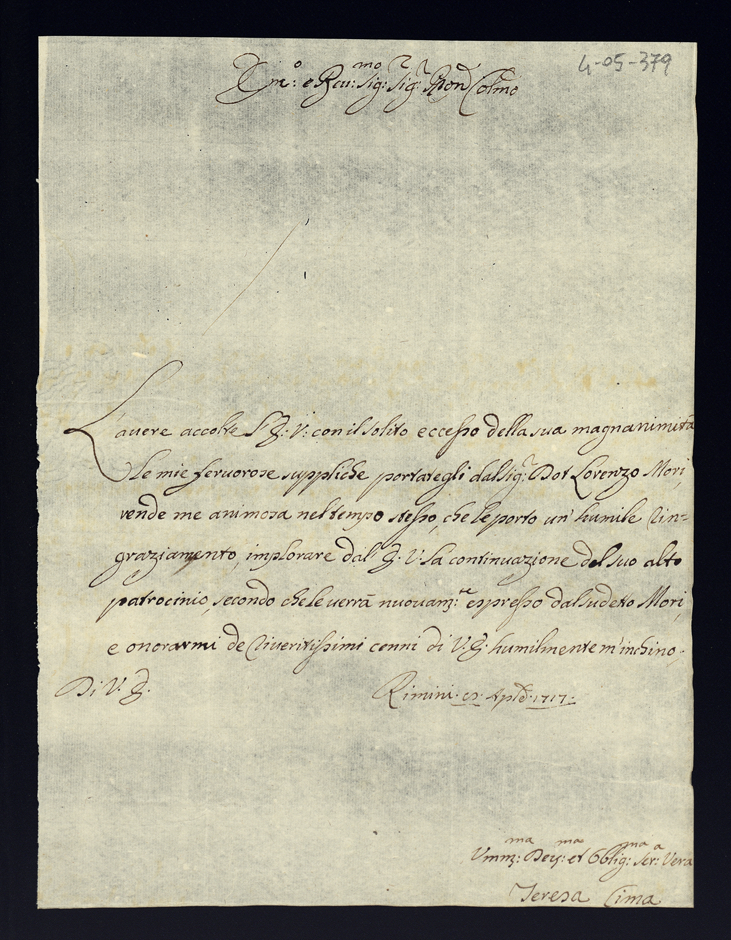 4-05-379
Em:o e Reu:mo Sig:r Sig:r Pron Colmo
L'auere accolte l'E: V: con il solito eccesso della sua magnanimità
le mie feruorose suppliche portategli dal Sig:r Dot Lorenzo Mori,
rende me animosa nel tempo stesso, che le porto un' humile rin=
graziamento, implorare dal E: V: la continuazione del suo alto
patrocinio, secondo che le verrà nuouam:te espresso dal sudetto Mori,
e onorarmi de riueritissimi cenni di V: E: humilmente m'inchino.
Di V: E:
Rimini Aple 1717:
Vmm:ma Deu:ma et Obblig:ma Ser:a Vera
Teresa Cima